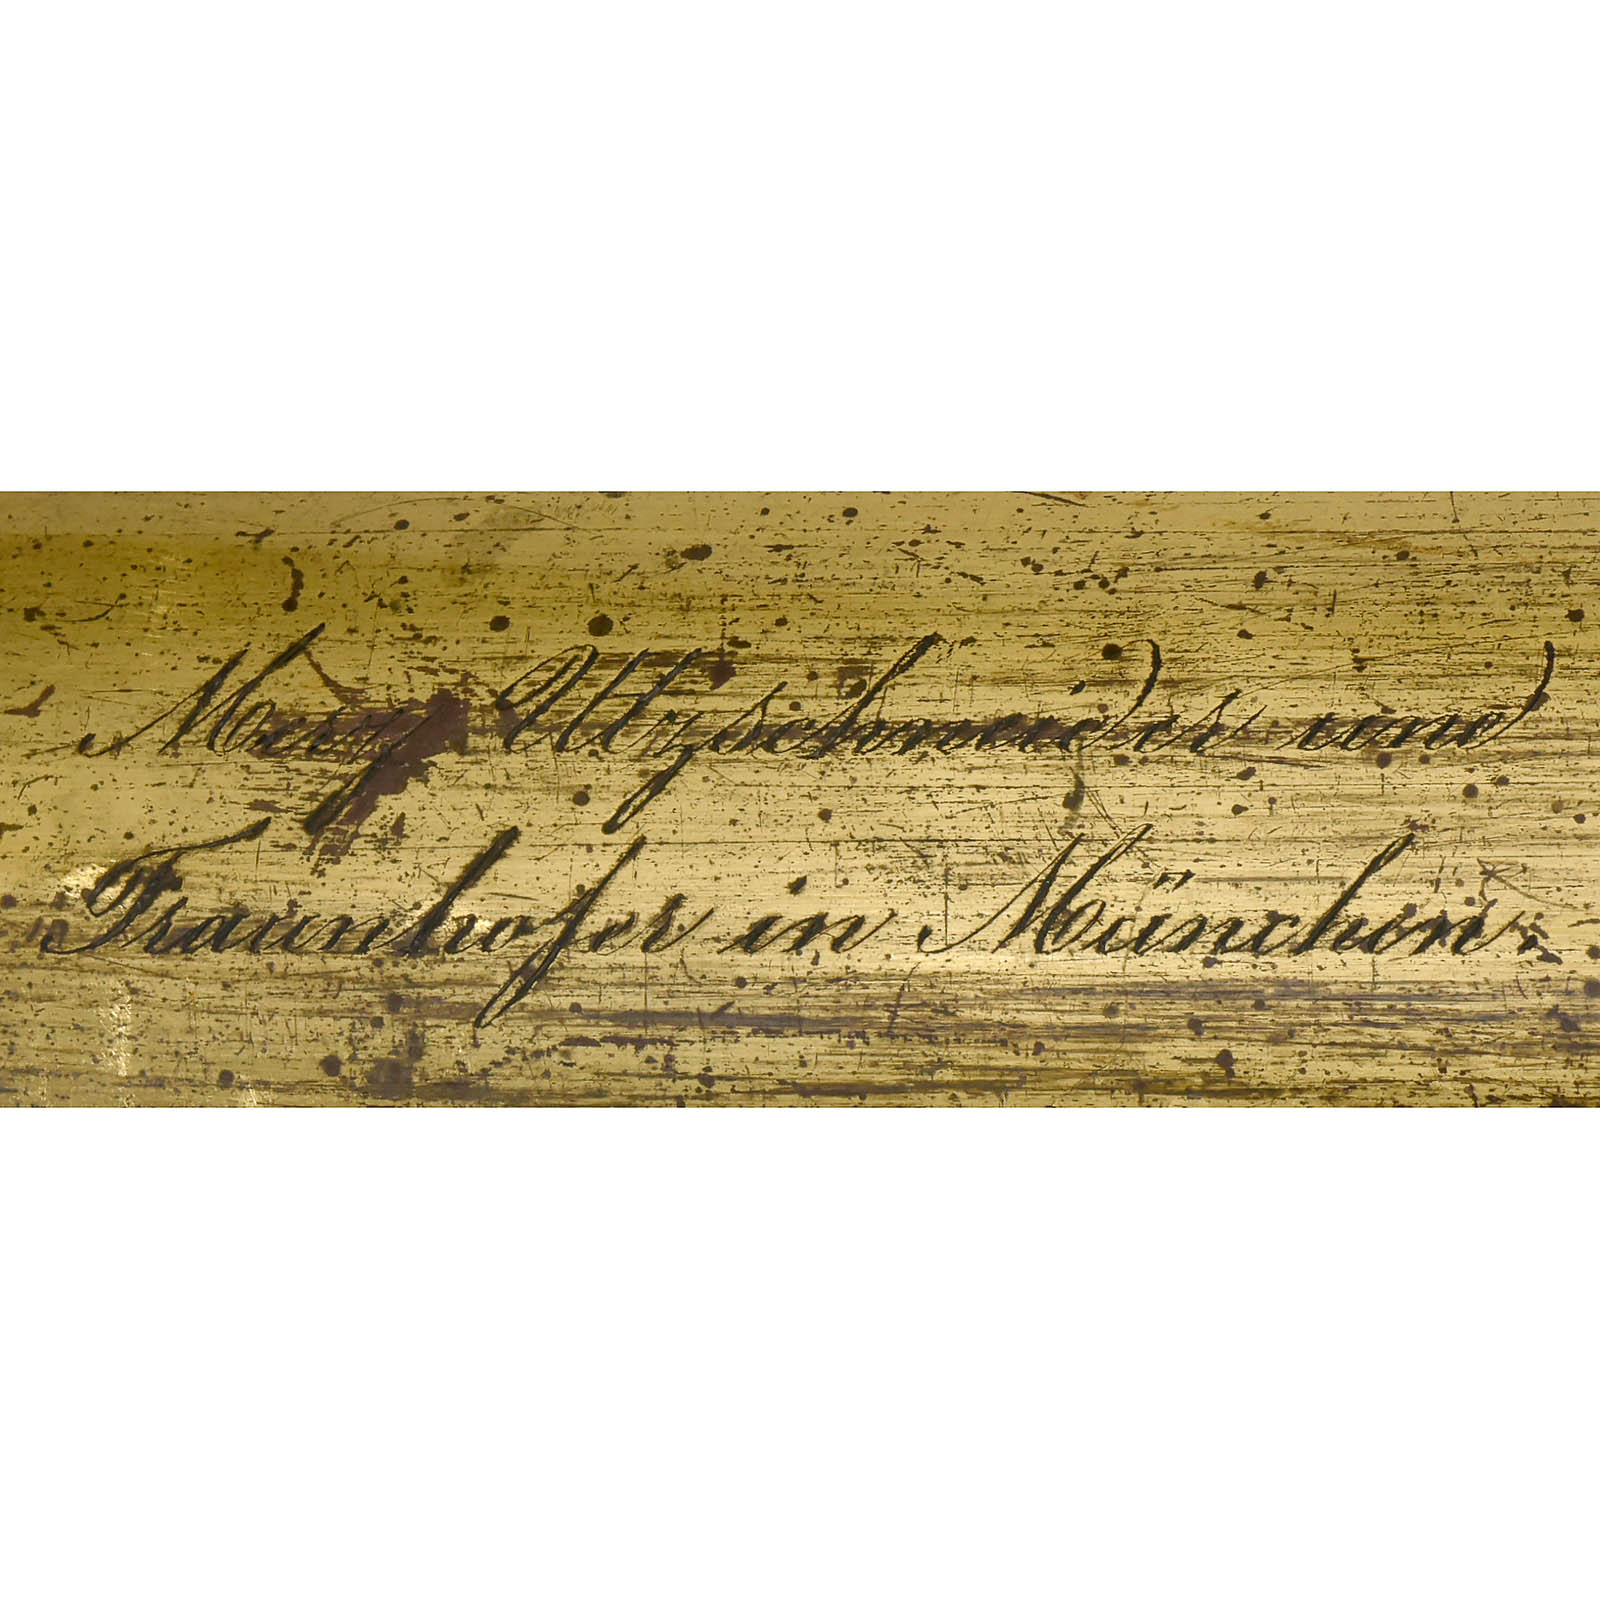 Merz Utzschneider und
Fraunhofer in München.